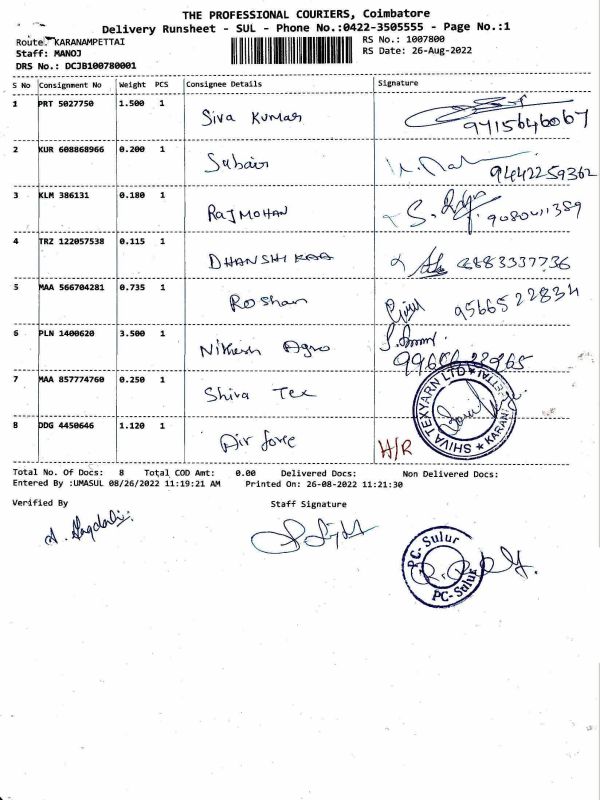 THE PROFESSIONAL COURIERS, Coimbatore
Delivery Runsheet - SUL - Phone No.:0422-3505555 - Page No.:1
Route: KARANAMPETTAI RS No.: 1007800
Staff: MANOJ RS Date: 26-Aug-2022
DRS No.: DCJB100780001
S No Consignment No Weight PCS Consignee Details Signature
1 PRT 5027750 1.500 1 Siva Kumar 9715646067
2 KUR 608868966 0.200 1 Subair 9442259362
3 KLM 386131 0.180 1 RAJMOHAN
4 TRZ 122057538 0.115 1 DHANSHIKAA 8883337736
5 MAA 566704281 0.735 1 Roshan 9566522834
6 PLN 1400620 3.500 1 Nithesh Agro
7 MAA 857774760 0.250 1 Shiva Tex
SHIVA TEXYARN LTD ★ KARANAMPETTAI ★
8 DDG 4450646 1.120 1 Air force H/R
Total No. Of Docs: 8 Total COD Amt: 0.00 Delivered Docs: Non Delivered Docs:
Entered By :UMASUL 08/26/2022 11:19:21 AM Printed On: 26-08-2022 11:21:30
Verified By Staff Signature
PC- Sulur
PC- Sulur